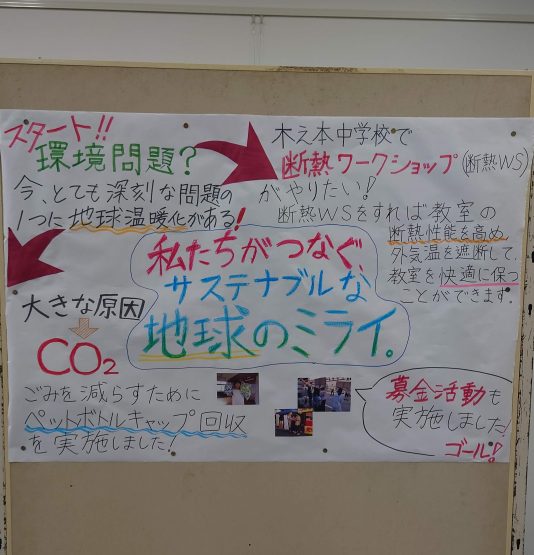 スタート!!
環境問題?
今、とても深刻な問題の
1つに地球温暖化がある!
大きな原因
CO2
ごみを減らすために
ペットボトルキャップ回収
を実施しました!
私たちがつなぐ、
サステナブルな
地球のミライ。
木之本中学校で
断熱ワークショップ(断熱WS)
がやりたい!
断熱WSをすれば教室の
断熱性能を高め、
外気温を遮断して、
教室を快適に保つ
ことができます。
募金活動も
実施しました!
ゴール!